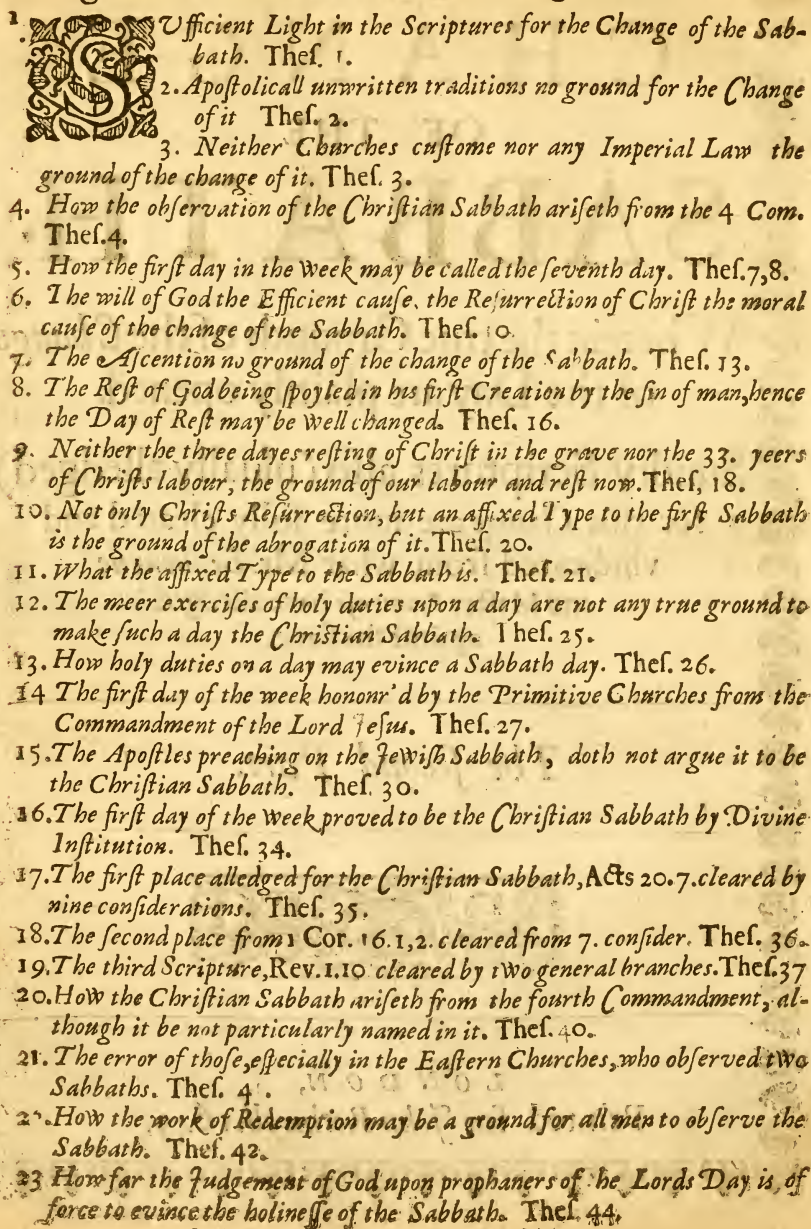 1. SUfficient Light in the Scriptures for the Change of the Sab-
bath. Theſ. 1.
2. Apoſtolicall unwritten traditions no ground for the Change
of it Theſ. 2.
3. Neither Churches cuſtome nor any Imperial Law the
ground of the change of it. Theſ. 3.
4. How the obſervation of the Chriſtian Sabbath ariſeth from the 4 Com.
Theſ. 4.
5. How the firſt day in the Week may be called the ſeventh day. Theſ. 7, 8.
6. The will of God the Efficient cauſe, the Reſurrection of Chriſt the moral
cauſe of the change of the Sabbath. Theſ. 10.
7. The Aſcention no ground of the change of the Sabbath. Theſ. 13.
8. The Reſt of God being ſpoyled in his firſt Creation by the ſin of man, hence
the Day of Reſt may be well changed. Theſ. 16.
9. Neither the three dayes reſting of Chriſt in the grave nor the 33. yeers
of Chriſts labour, the ground of our labour and reſt now. Theſ, 18.
10. Not only Chriſts Reſurrection, but an affixed Type to the firſt Sabbath
is the ground of the abrogation of it. Theſ. 20.
11. What the affixed Type to the Sabbath is. Theſ. 21.
12. The meer exerciſes of holy duties upon a day are not any true ground to
make ſuch a day the Chriſtian Sabbath. Theſ. 25.
13. How holy duties on a day may evince a Sabbath day. Theſ. 26.
14 The firſt day of the week honour'd by the Primitive Churches from the
Commandment of the Lord Jeſus. Theſ. 27.
15. The Apoſtles preaching on the Jewiſh Sabbath, doth not argue it to be
the Chriſtian Sabbath. Theſ. 30.
16. The firſt day of the Week proved to be the Chriſtian Sabbath by Divine
Inſtitution. Theſ. 34.
17. The firſt place alledged for the Chriſtian Sabbath, Acts 20. 7. cleared by
nine conſiderations. Theſ. 35.
18. The ſecond place from 1 Cor. 16. 1, 2. cleared from 7. conſider. Theſ. 36.
19. The third Scripture, Rev. 1. 10 cleared by two general branches. Theſ. 37
20. How the Chriſtian Sabbath ariſeth from the fourth Commandment, al-
though it be not particularly named in it. Theſ. 40.
21. The error of thoſe, eſpecially in the Eaſtern Churches, who obſerved two
Sabbaths. Theſ. 4 .
2 . How the work of Redemption may be a ground for all men to obſerve the
Sabbath. Theſ. 42.
23 How far the Judgement of God upon prophaners of he Lords Day is of
force to evince the holineſſe of the Sabbath. Theſ. 44.